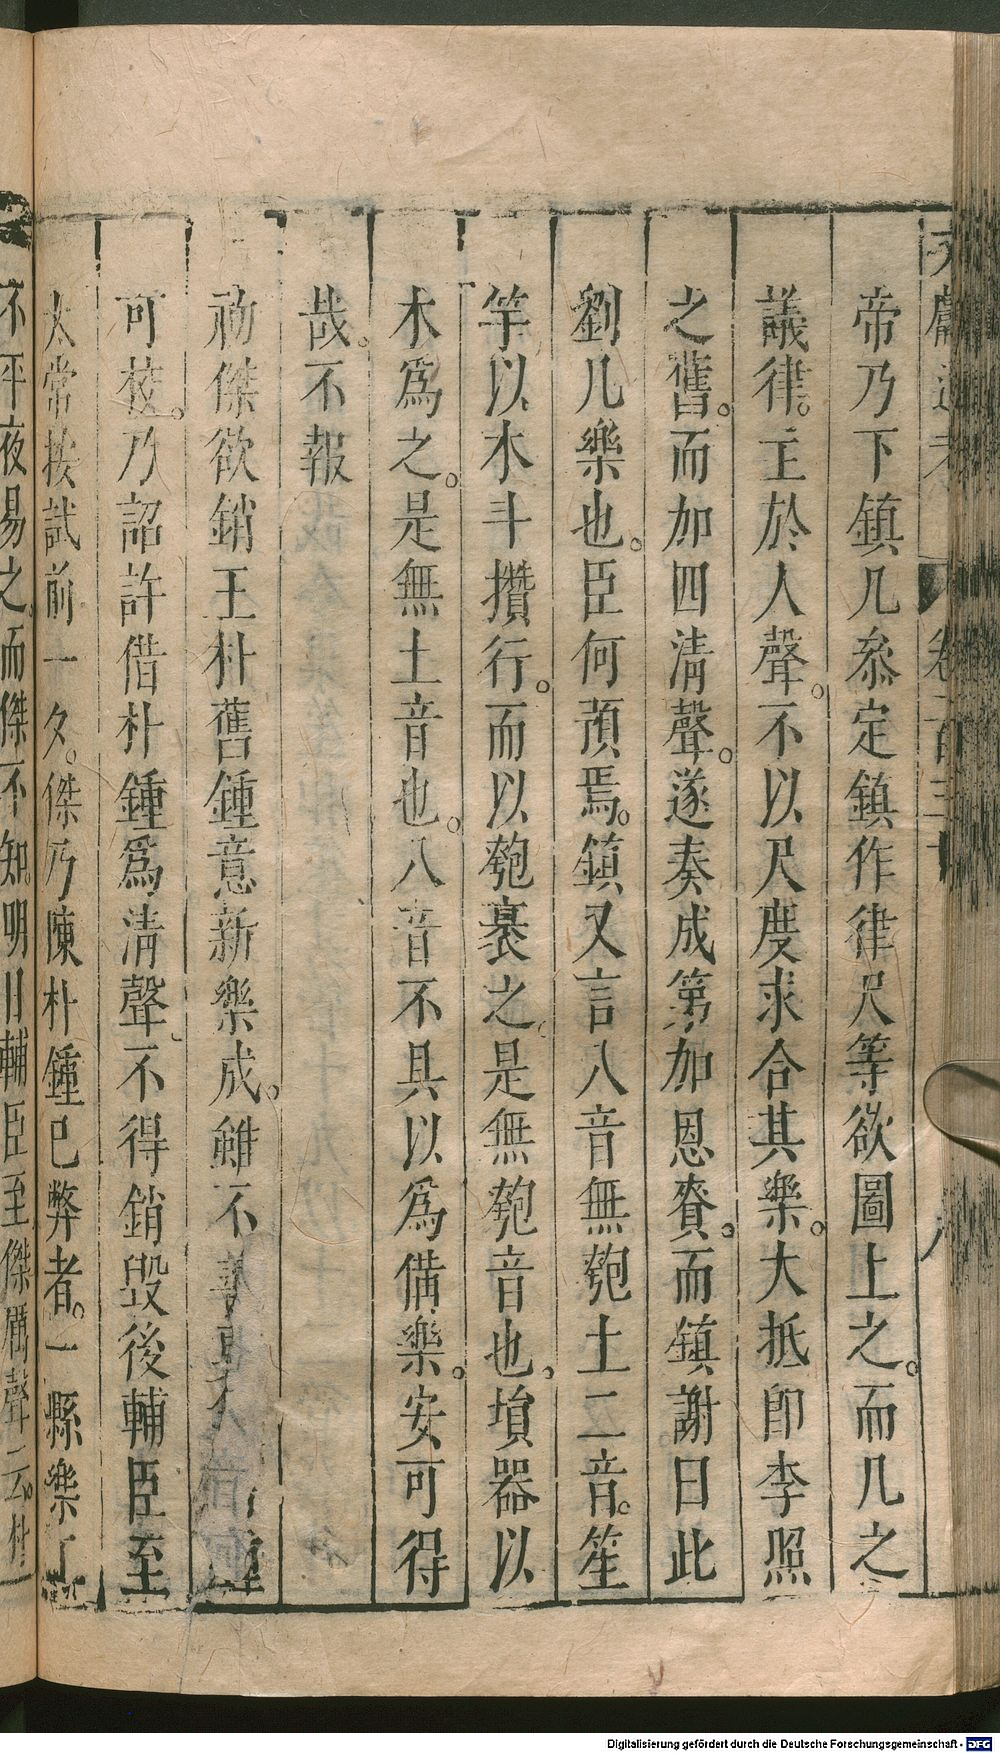 帝乃下鎮几叅定鎮作律尺等欲圖上之。而几之
議律。主於人聲。不以尺度求合其樂。大抵即李照
之舊。而加四清聲。遂奏成第加恩賚。而鎮謝曰此
劉几樂也。臣何預焉。鎮又言八音無匏土二音。笙
竽以木斗攅行。而以匏裹之。是無匏音也。塤器以
木為之。是無土音也。八音不具以為備樂。安可得
哉。不報
初傑欲銷王朴舊鍾意新樂成。雖不善更
可校。乃詔許借朴鍾為清聲、不得銷毀後輔臣至
太常按試前一夕。傑乃陳朴鍾已弊者。一縣樂工
不平夜易之。而傑不知。明日輔臣至傑厲聲云。朴
Digitalisierung gefördert durch die Deutsche Forschungsgemeinschaft - DFG